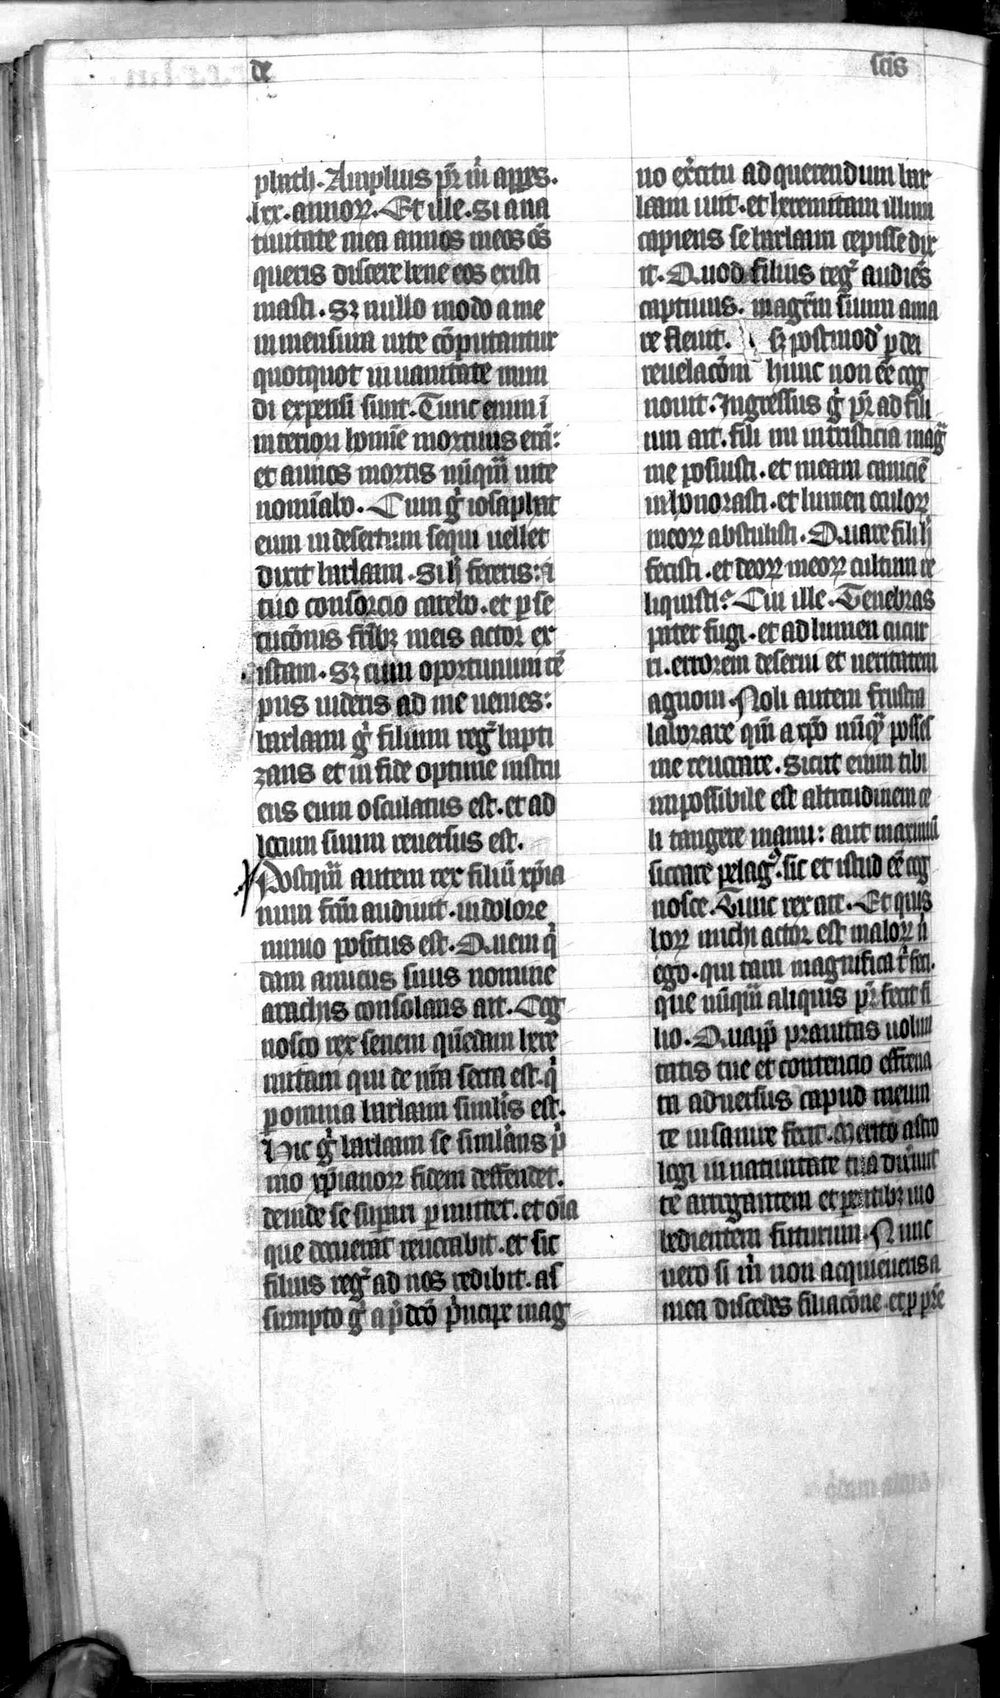 de
scis
phath. Amplius pr̄ m̄ appes.
.lxx. annoꝝ. Et ille. Si a na
tiuitate mea annos meos c̄s
queris discere bene eos existi
masti. Sꝫ nullo modo a me
in mensura uite cōputantur
quotquot in uanitate mun
di expensi sunt. Tunc enim ī
interiori homīe mortuus erā:
et annos mortis nūquā uite
nomīabo. Cum gͥ iosaphat
eum in desertum sequi uellet
dixit barlaam. Si h̄ feceris: a
tuo consorcio carebo. et p̱se
cucōnis frībꝫ meis actor ex
istam. Sꝫ cum oportunum tē
pus uideris ad me uenies:
barlaam gͥ filium regꝭ bapti
zans et in fide optime instru
ens eum osculatus est. et ad
locum suum reuersus est.
Postquā autem rex filiū xp̄ia
num factū audiuit. in dolore
nimio positus est. Quem qͥ
dam amicus suus nomine
arachis consolans ait. Cog
nosco rex senem quēdam here
mitam qui de nr̄a secta est. qͥ
p omnia barlaam similis est.
Hic gͥ barlaam se simlans pͥ
mo xp̄ianoꝝ fidem deffendet.
deinde se suꝑari ꝑmittet. et oīa
que docuerat reuocabit. et sic
filius regꝭ ad nos redibit. as
sumpto gͥ a p̄dcō pͥncipe mag
no ex̄citu ad querendum bar
laam iuit. et heremitam illum
capiens se barlaam cepisse dix
it. Quod filius regꝭ audiēs
captiuus. magr̄m suum ama
re fleuit. sꝫ postmodū ꝑ dei
reuelacōm hunc non eē cog
nouit. Ingressus gͥ pr̄ ad fili
um ait. fili mi in tristicia mag
me posuisti. et meam caniciē
inhonorasti. et lumen oculoꝝ
meoꝝ abstulisti. Quare fili h̄
fecisti. et deoꝝ meoꝝ cultum re
liquisti? Cui ille. Tenebras
pater fugi. et ad lumen cucur
ri. errorem deserui et ueritatem
agnoui. Noli autem frustra
laborare qm̄ a xp̄o nūqͣ possis
me reuocare. Sicut enim tibi
impossibile est altitudinem ce
li tangere manu: aut maximū
siccare pelagꝰ. sic et istud eē cog
nosce. Tunc rex ait. Et quis
hoꝝ michi actor est maloꝝ n̄
ego. qui tam magnifica t̄ feci.
que nūquā aliquis pr̄ fecit fi
lio. Quapp̱ prauitas uolun
tatis tue et contencio effrena
ta aduersus capud meum
te insanire fecit. Merito astro
logi in natiuitate tua dixerunt
te arrogantem et parentibꝫ ino
bedientem futurum. Nunc
uero si m̄ non acquieueris a
mea discedes filiacōne. et ꝓ pr̄e